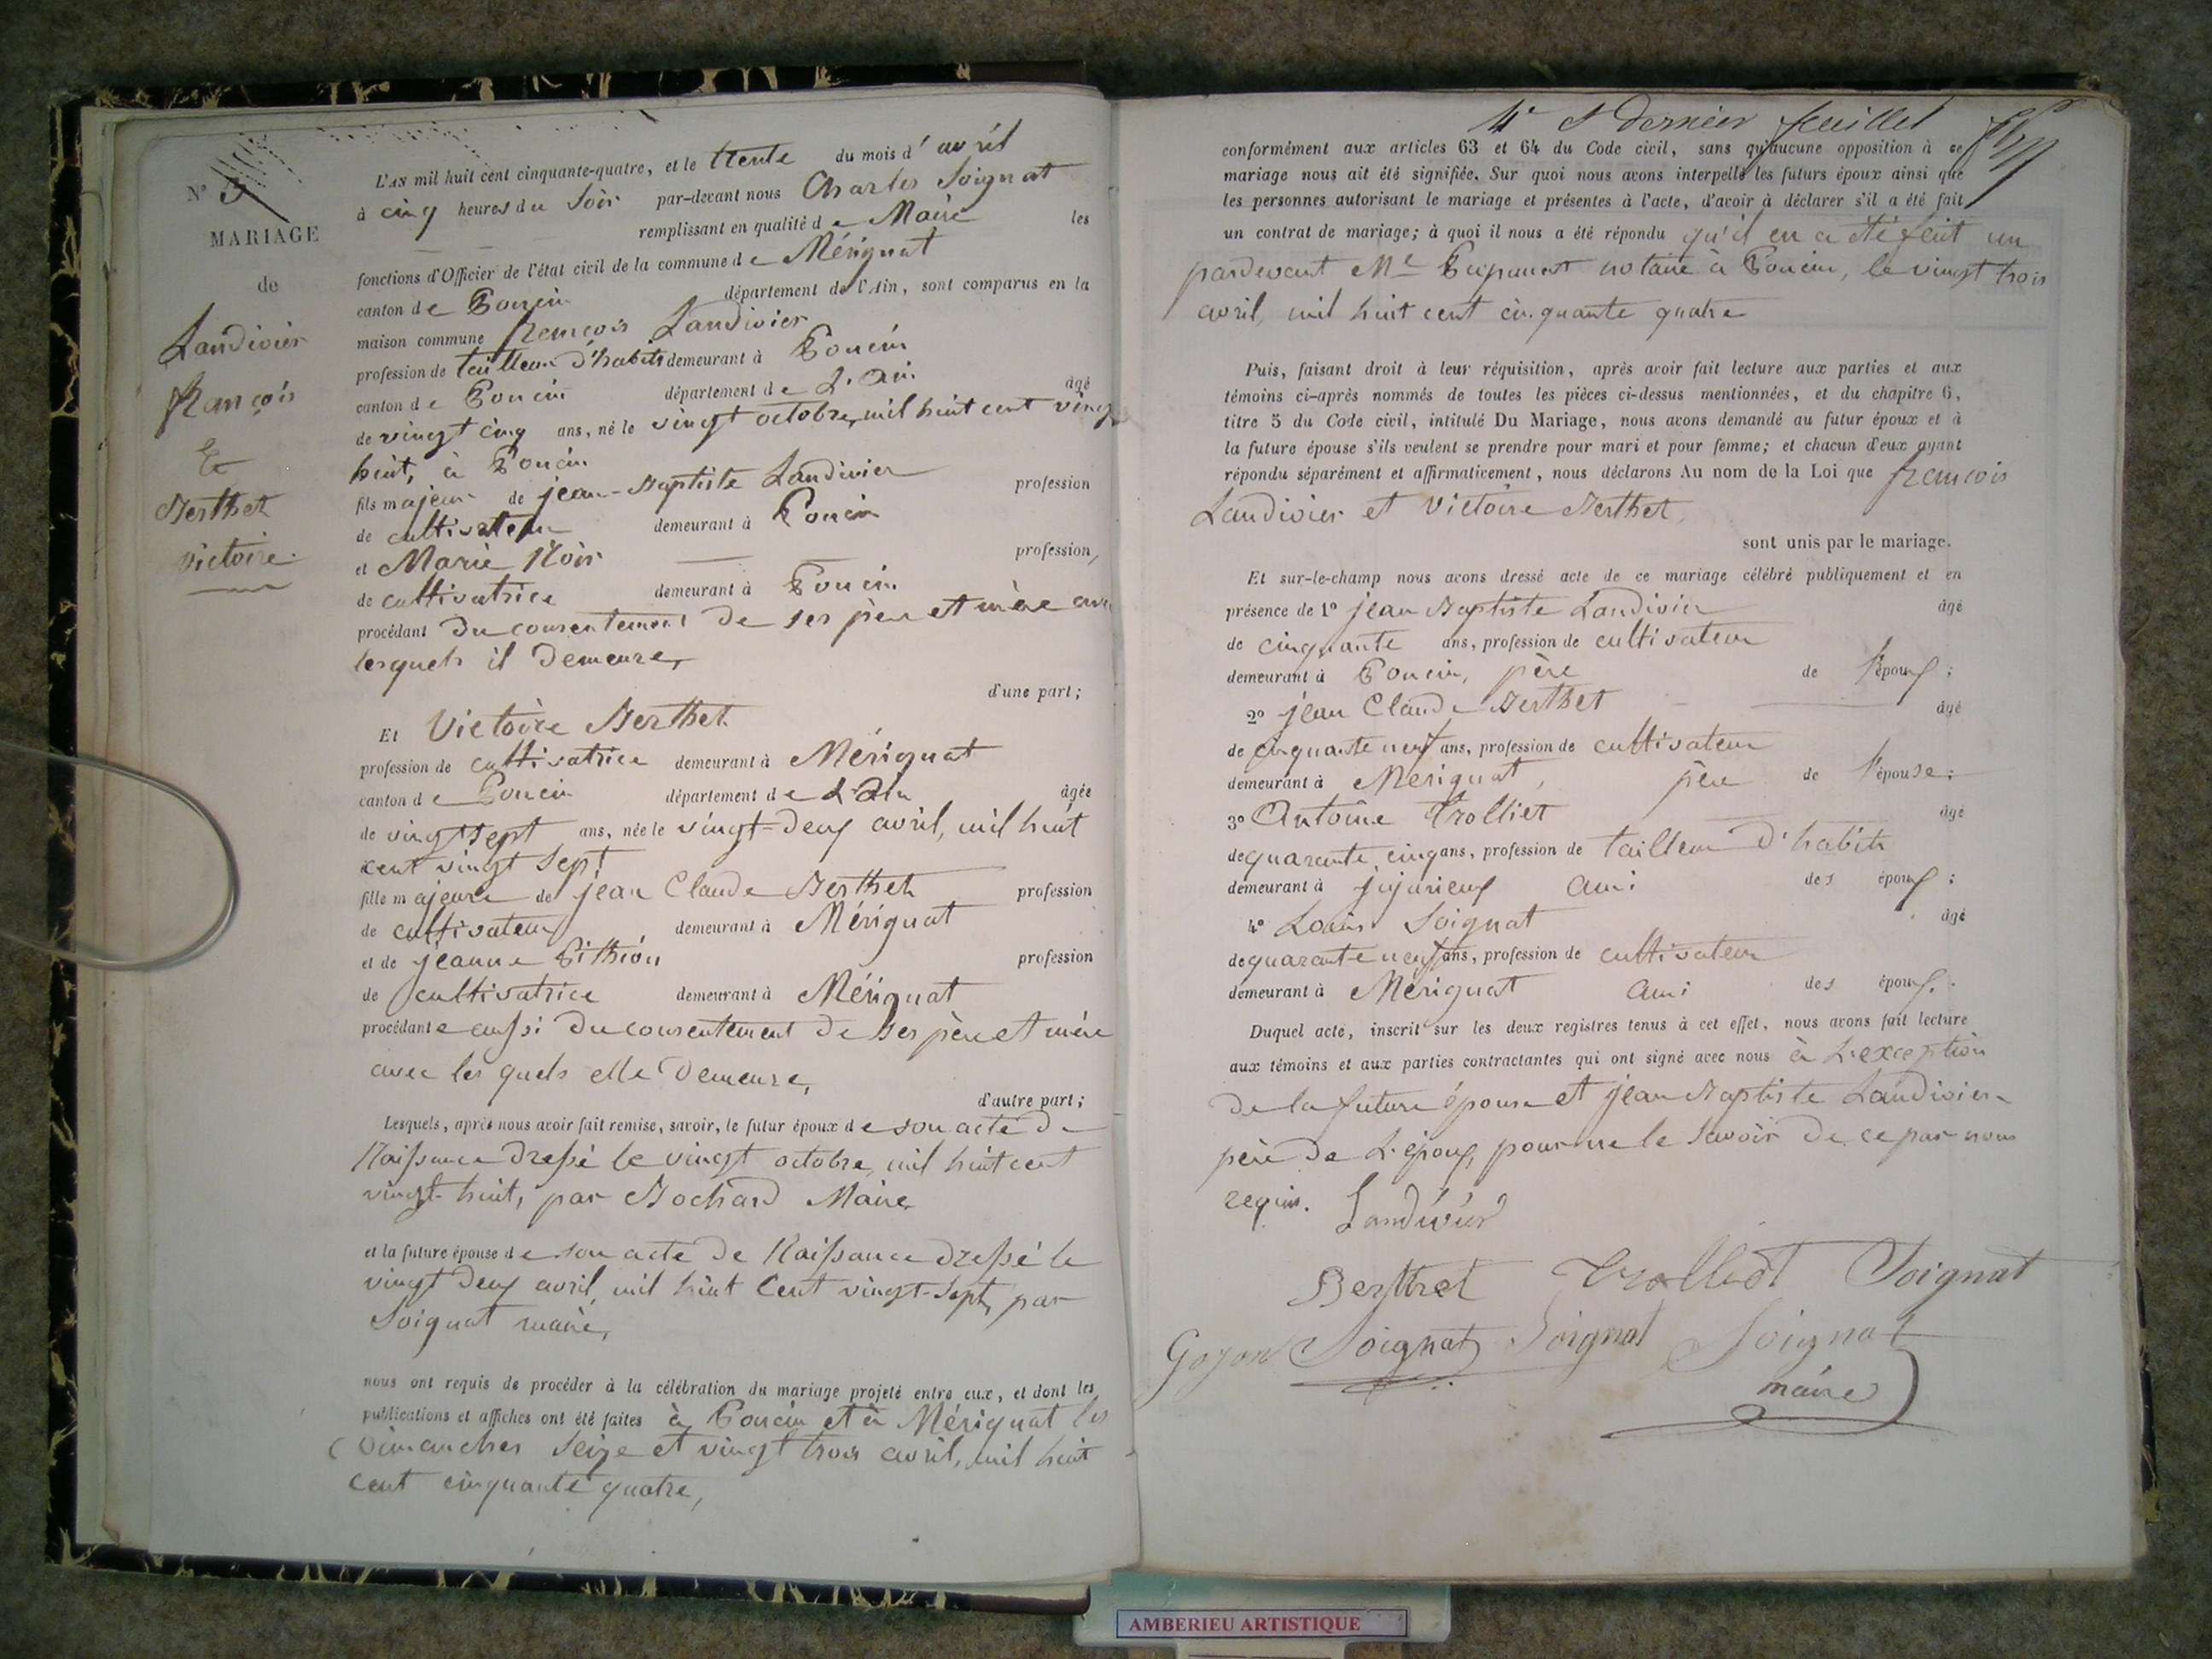 N° 3
MARIAGE
de
Landivier
françois
Et
Berthet
victoire.
L'AN mil huit cent cinquante-quatre, et le trente du mois d'avril
à cinq heures du Soir par-devant nous Charles Soignat
remplissant en qualité de Maire les
fonctions d'Officier de l'état civil de la commune de Mérignat
canton de Poncin département de l'Ain, sont comparus en la
maison commune françois Landivier
profession de tailleur d'habits demeurant à Poncin
canton de Poncin département de L'Ain âgé
de vingt cinq ans, né le vingt octobre, mil huit cent vingt
huit, à Poncin
fils majeur de jean-Baptiste Landivier profession
de cultivateur demeurant à Poncin
et Marie Noir profession
de cultivatrice demeurant à Poncin
procédant du consentement de ses père et mère avec
lesquels il demeure,
d'une part;
Et Victoire Berthet
profession de cultivatrice demeurant à Mérignat
canton de Poncin département de L'Ain âgée
de vingt sept ans, née le vingt-deux avril, mil huit
cent vingt sept
fille majeure de jean Claude Berthet profession
de cultivateur demeurant à Mérignat
et de jeanne Pithion profession
de cultivatrice demeurant à Mérignat
procédante aussi du consentement de ses père et mère
avec les quels elle demeure,
d'autre part;
Lesquels, après nous avoir fait remise, savoir, le futur époux de son acte de
Naissance dressé le vingt octobre, mil huit cent
vingt-huit, par Bochard Maire
et la future épouse de son acte de Naissance dressé le
vingt deux avril, mil huit Cent vingt-Sept, par
Soignat maire,
nous ont requis de procéder à la célébration du mariage projeté entre eux, et dont les
publications et affiches ont été faites à Poncin et à Mérignat les
Dimanches Seize et vingt trois avril, mil huit
cent cinquante quatre,
4e & dernier feuillet
conformément aux articles 63 et 64 du Code civil, sans qu'aucune opposition à ce
mariage nous ait été signifiée. Sur quoi nous avons interpellé les futurs époux ainsi que
les personnes autorisant le mariage et présentes à l'acte, d'avoir à déclarer s'il a été fait
un contrat de mariage; à quoi il nous a été répondu qu'il en a été fait un
pardevant Me notaire à Poncin, le vingt trois
avril, mil huit cent cinquante quatre
Puis, faisant droit à leur réquisition, après avoir fait lecture aux parties et aux
témoins ci-après nommés de toutes les pièces ci-dessus mentionnées, et du chapitre 6,
titre 5 du Code civil, intitulé Du Mariage, nous avons demandé au futur époux et à
la future épouse s'ils veulent se prendre pour mari et pour femme; et chacun d'eux ayant
répondu séparément et affirmativement, nous déclarons Au nom de la Loi que françois
Landivier et Victoire Berthet,
sont unis par le mariage.
Et sur-le-champ nous avons dressé acte de ce mariage célébré publiquement et en
présence de 1° jean Baptiste Landivier âgé
de cinquante ans, profession de cultivateur
demeurant à Poncin, père de l'époux;
2° jean Claude Berthet âgé
de cinquante neuf ans, profession de cultivateur
demeurant à Merignat, père de l'épouse;
3° Antoine Trolliet âgé
de quarante cinq ans, profession de tailleur d'habits
demeurant à jujurieux ami des époux;
4° Louis Soignat âgé
de quarante neuf ans, profession de cultivateur
demeurant à Mérignat ami des époux.
Duquel acte, inscrit sur les deux registres tenus à cet effet, nous avons fait lecture
aux témoins et aux parties contractantes qui ont signé avec nous à L'exception
de la future épouse et jean Baptiste Landivier
père de L'époux, pour ne le Savoir de ce par nous
requis. Landivier
Berthet Trolliet Soignat
Goyon Soignat Soignat Soignat
maire
AMBERIEU ARTISTIQUE